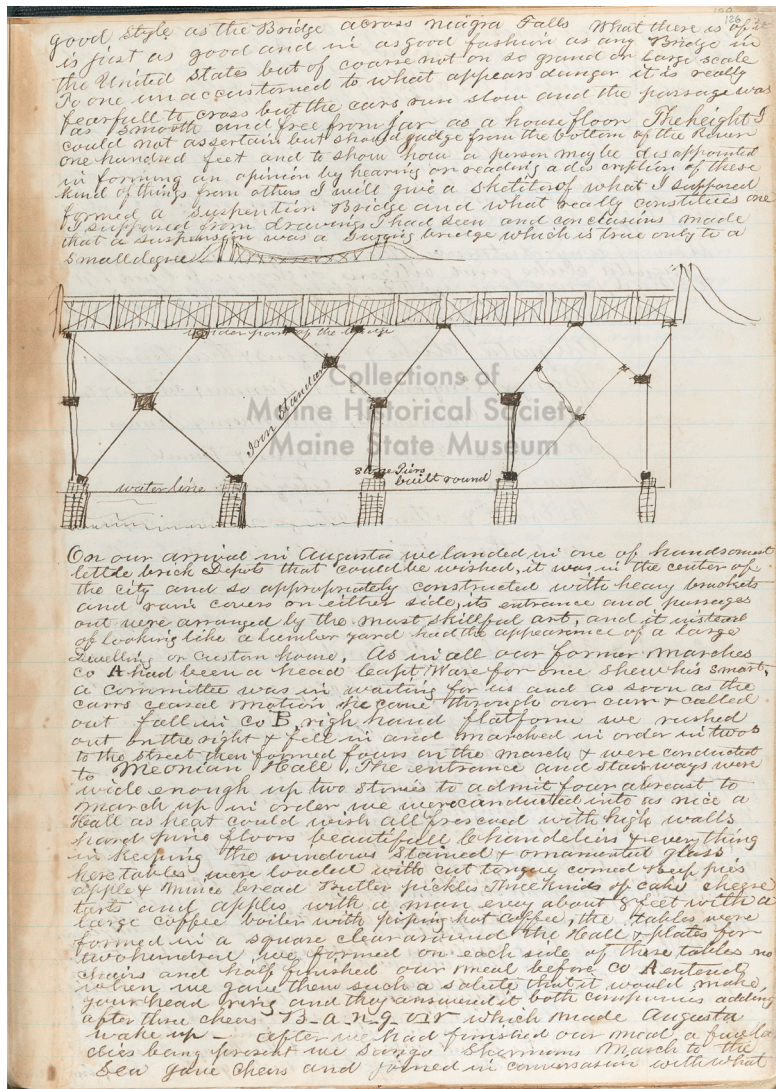 126
good Style as the Bridge across niagra Falls What there is of it
is just as good and in as good fashion as any Bridge in
the United States but of coarse not on so grand or Large scale
To one unaccustomed to what appears danger it is really
fearfull to cross but the cars run slow and the passage was
as smooth and free from jar as a house floor The height I
could not ascertain but should gadge from the bottom of the River
one hundred feet and to show how a person may be disappointed
in forming an opinion by hearing or reading a discription of these
kind of things from others I will give a sketch of what I supposed
formed a Suspention Bridge and what really constitues one
I supposed from drawings I had seen and conclusions made
that a suspension was a bridge which is true only to a
small degree
under part of the bridge
Collections of
Maine Historical Society
Maine State Museum
Iron Standard
stone Piers
built round
water line
On our arrival in Augusta we landed in one of handsomest
little brick Depots that could be wished, it was in the center of
the city and so appropriately constructed with heavy brackets
and covers on either side, its entrance and passages
out were arranged by the most skillful art, and it instead
of looking like a lumber yard had the appearance of a Large
Dwelling or Custom house. As in all our former marches
co A had been a head Capt Ware for once shew his smart,
a committee was in waiting for us and as soon as the
carrs ceased motion he came through our carr & called
out fall in co B, righ hand platforme we rushed
out on the right & fell in and marched in order in twos
to the street then formed fours on the march & were conducted
to Meonian Hall, The entrance and stairways were
wide enough up two stories to admit four abreast to
march up in order we were conducted into as nice a
Hall as heart could wish all frescoed with high walls
hard pine floors beautifull Chandeliers & everything
in keeping the windows Stained & ornamental glass
here tables were loaded with cut tongue corned Beef pies
apple & mince bread Butter pickles three kinds of cake cheese
tarts and apples with a man evry about 8 feet with a
large coffee boiler with piping hot coffee, the tables were
formed in a square clear around the Hall & plates for
two hundred we formed on each side of these tables no
chairs and half finished our meal before Co A entered
when we gave them such a salute that it would make
your head ring and they answered it both companies adding
after three cheers B-a-n-g-o-r which made Augusta
wake up - after we had finished our meal a few la
dies being present we Shermans March to the
Sea gave cheers and joined in conversation with what